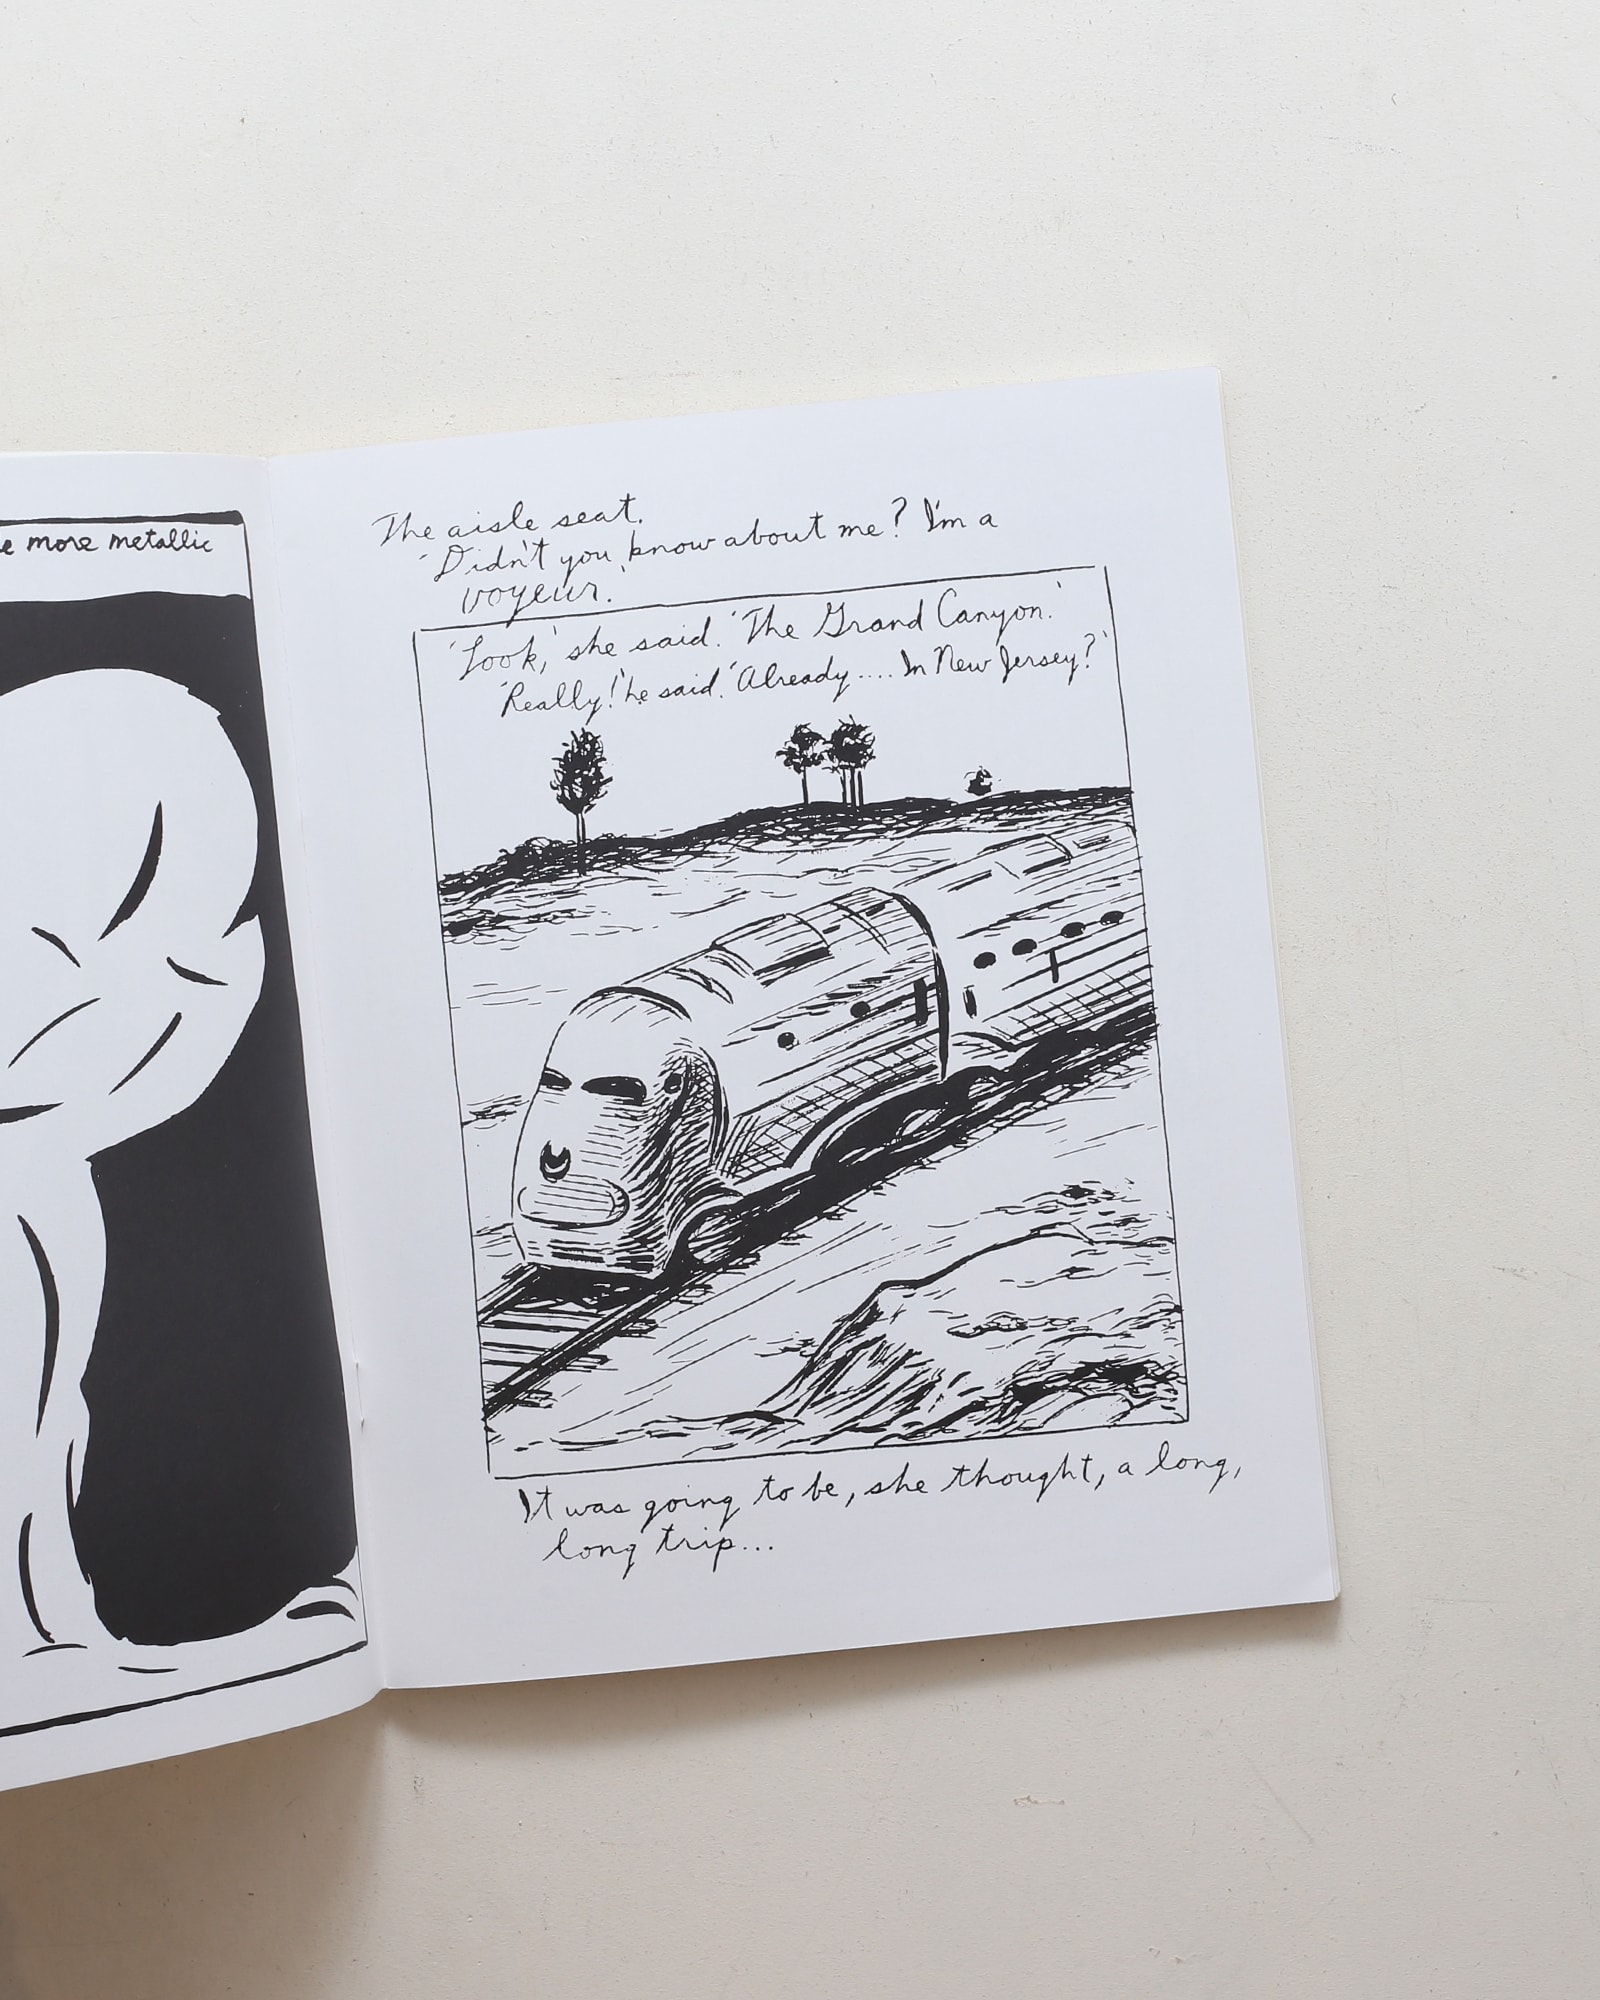 e more metallic
The aisle seat.
'Didn't you know about me? I'm a
voyeur.'
'Look,' she said. 'The Grand Canyon.'
'Really!' he said. 'Already.... In New Jersey?'
It was going to be, she thought, a long,
long trip...